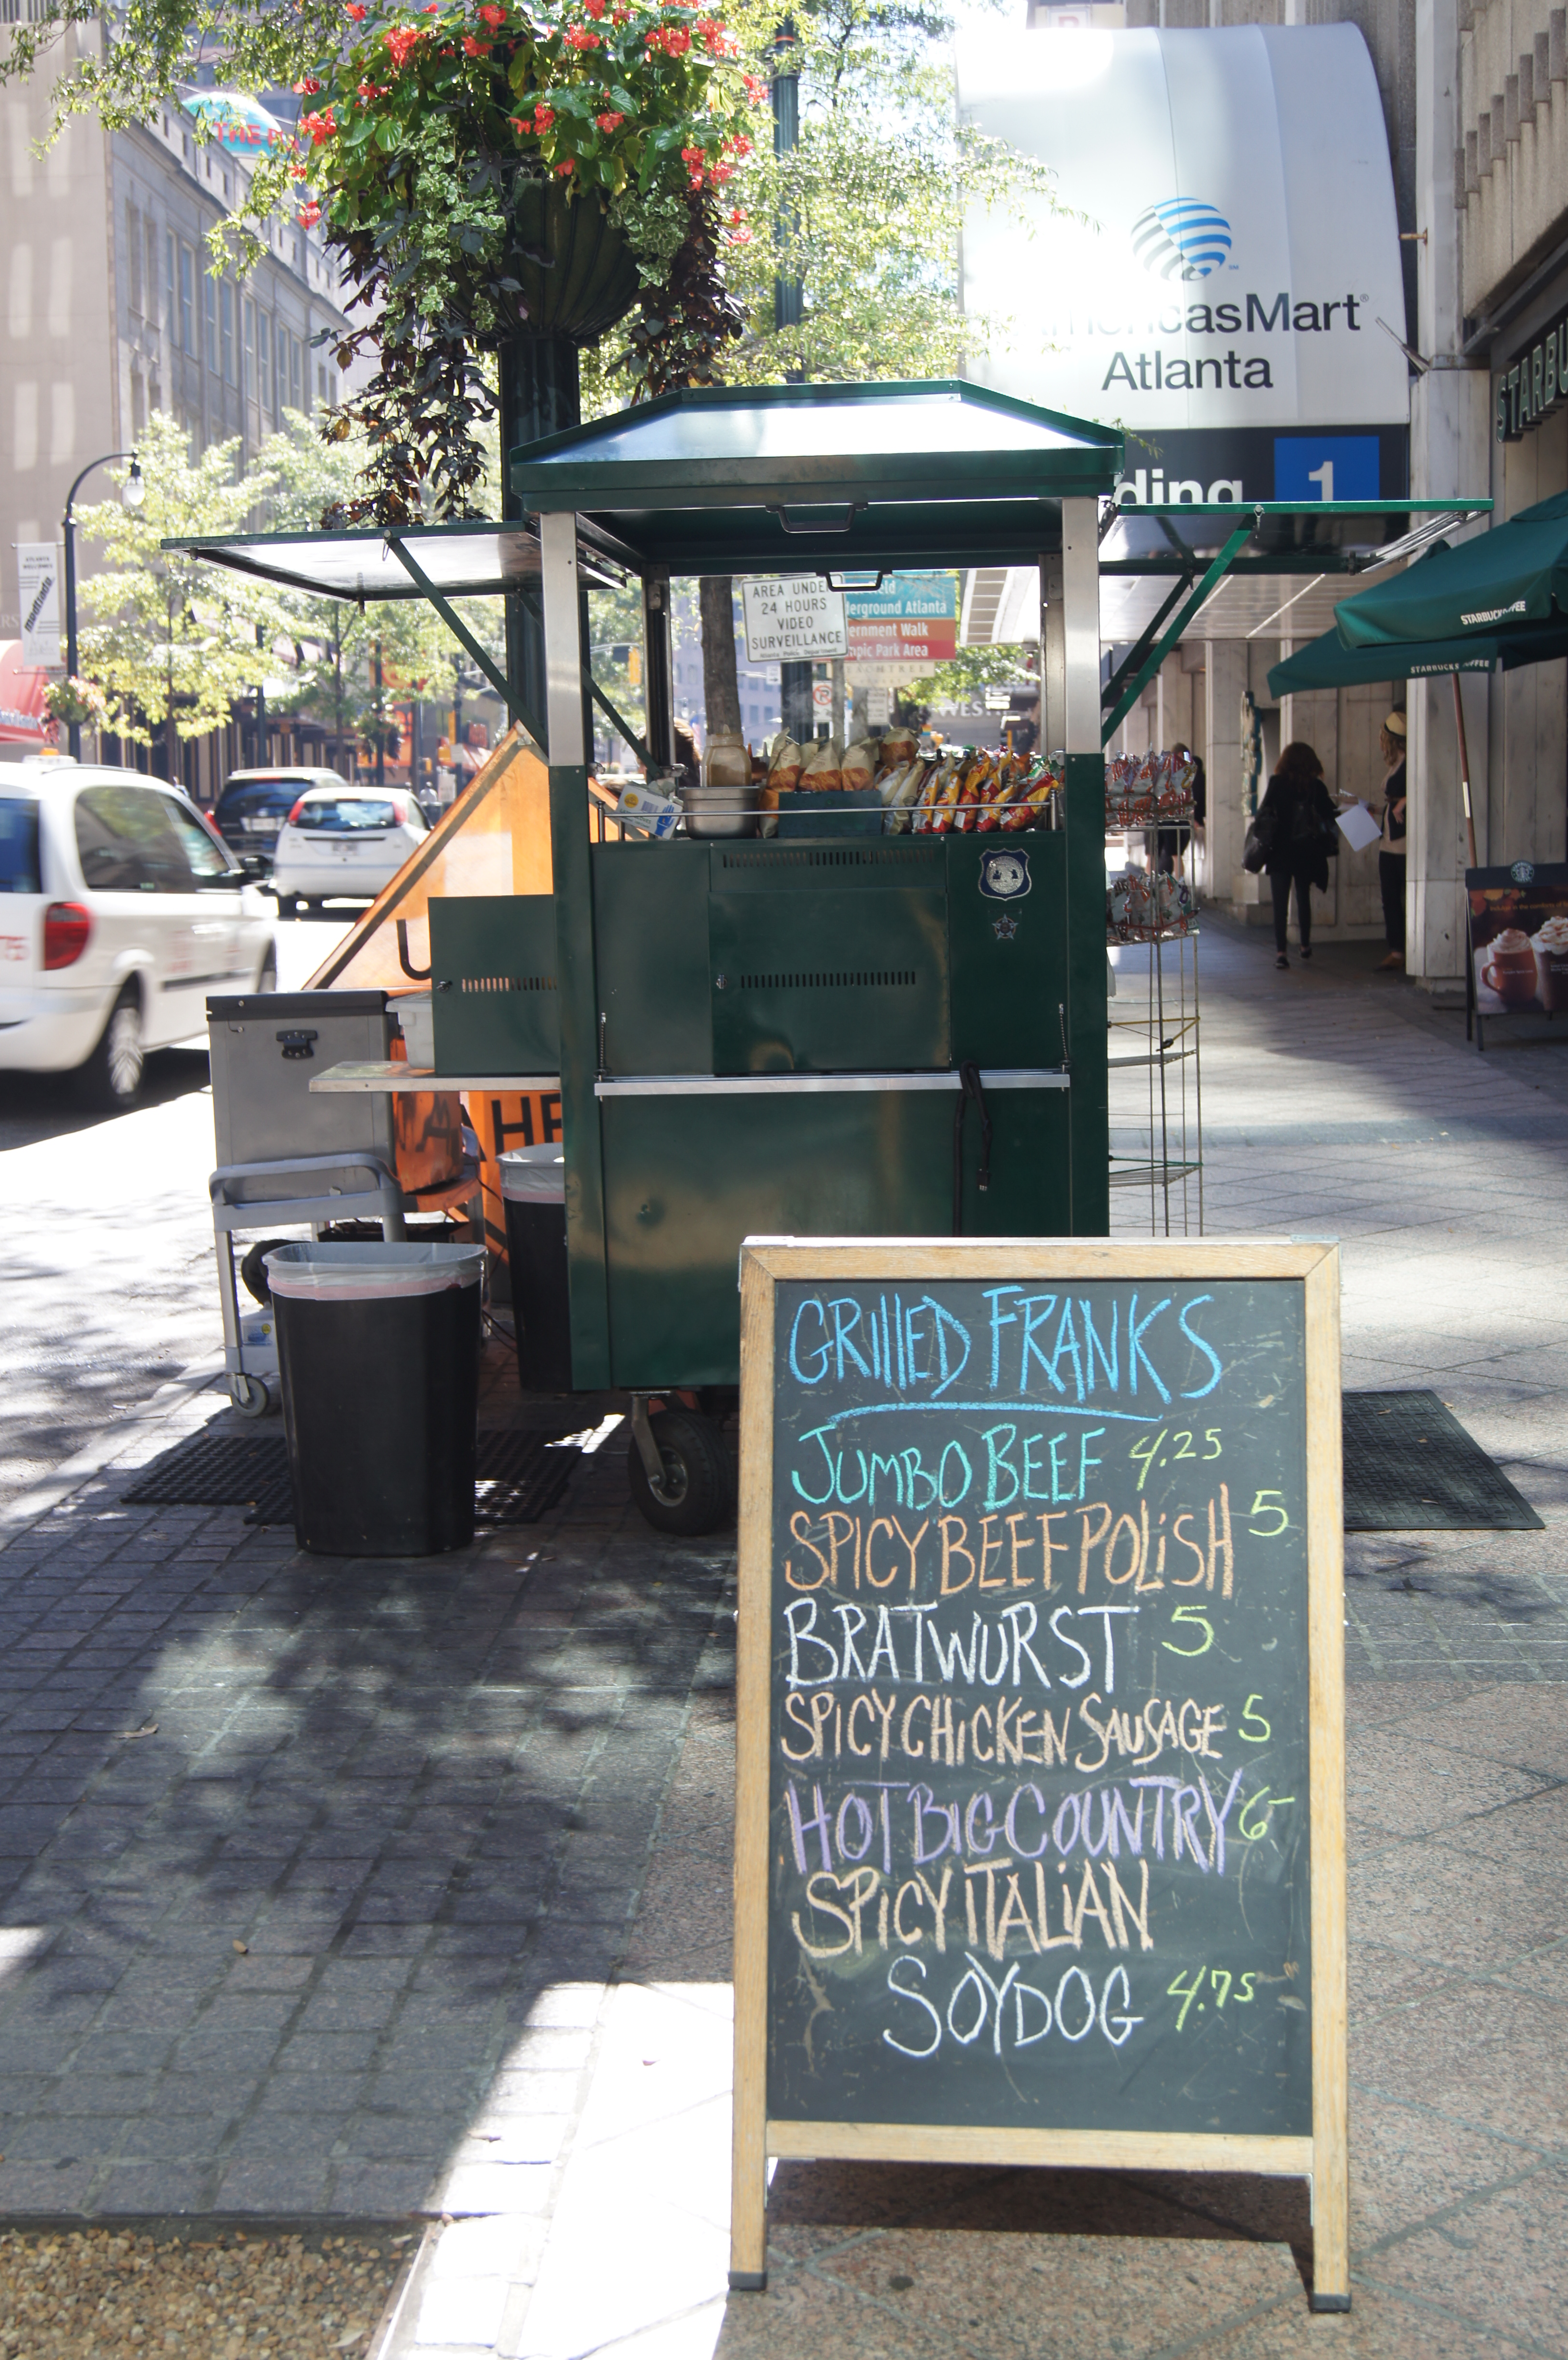 THE
AmericasMart®
Atlanta
1
STARBUCKS COFFEE
STARBUCKS COFFEE
AREA UNDER
24 HOURS
VIDEO
SURVEILLANCE
Atlanta Police Department
derground Atlanta
ernment Walk
mpic Park Area
GRILLED FRANKS
JUMBO BEEF 4.25
SPICY BEEF POLISH 5
BRATWURST 5
SPICY CHICKEN SAUSAGE 5
HOT BIG COUNTRY 6-
SPICY ITALIAN
SOYDOG 4.75